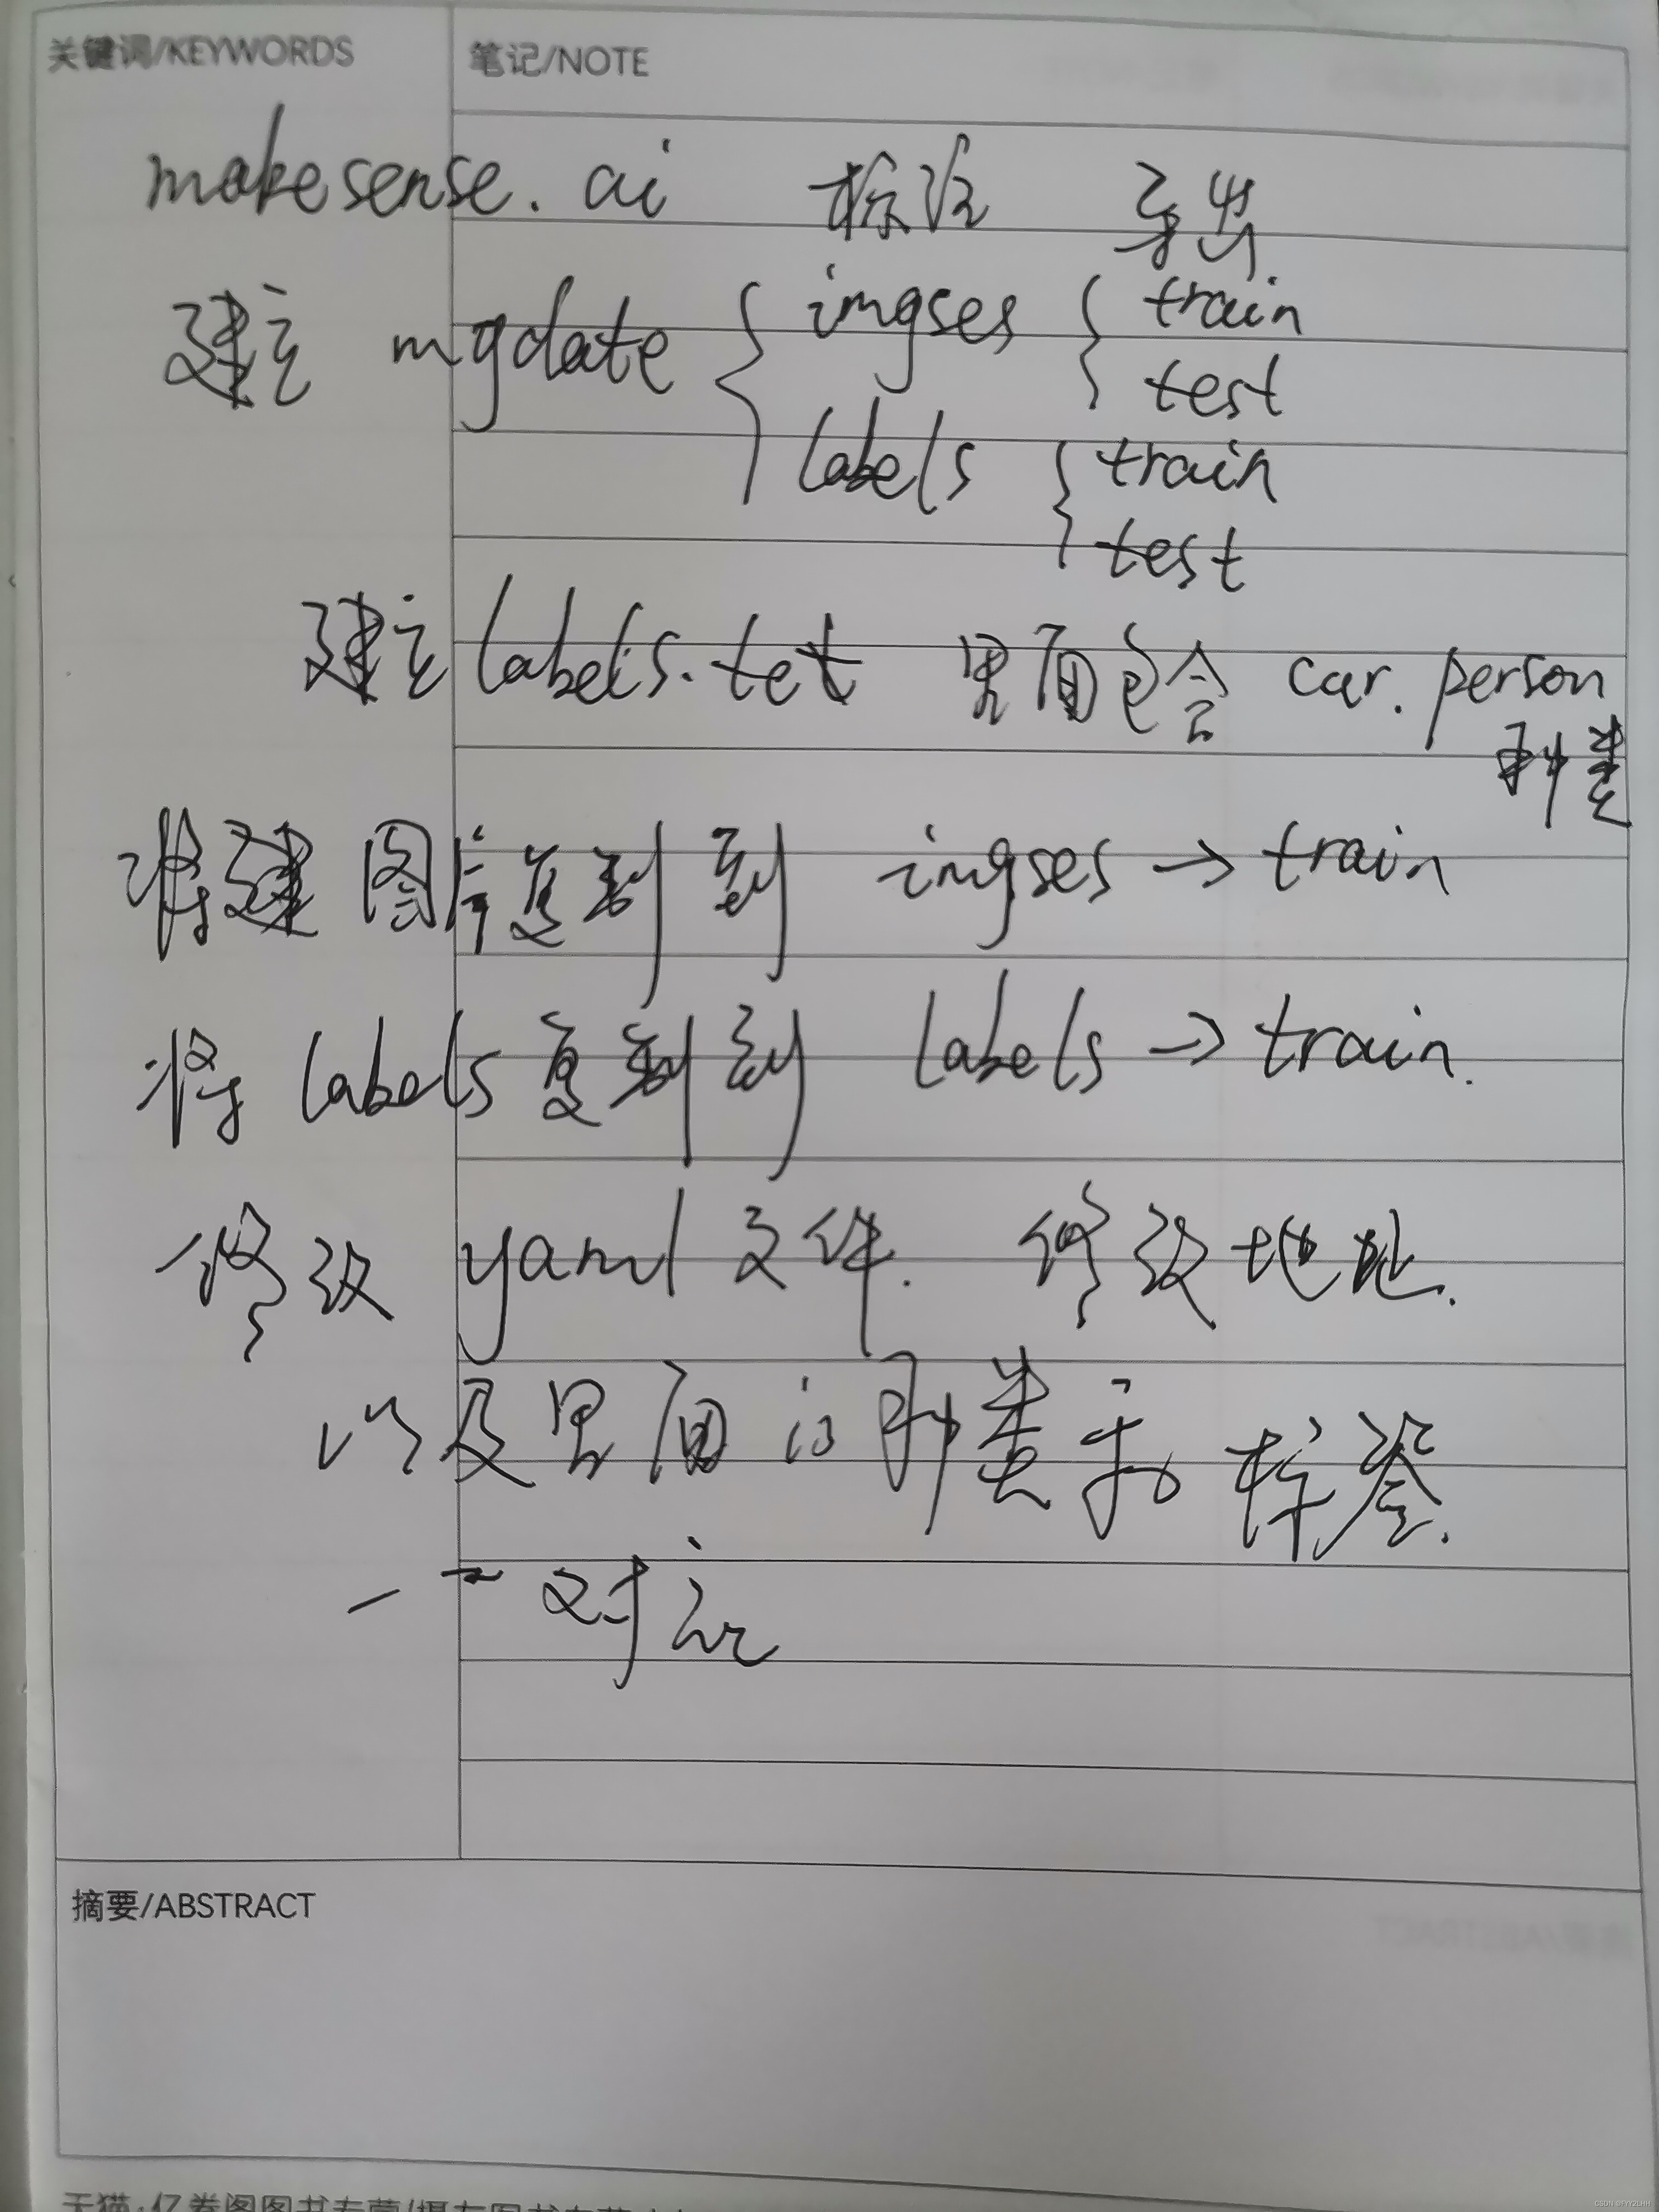 关键词/KEYWORDS 笔记/NOTE
makesense.ai 标注 导出.
建立 mydate { imgses { train
test
labels { train
test
建立 labels.tet 里面包含 car. person
种类
将建 图片复制到 imgses → train
将 labels 复制到 labels → train.
修改 yaml 文件. 修改地址.
以及里面的种类和标签.
一一对应
摘要/ABSTRACT
天猫:亿卷阁图书专营/
CSDN @YYZLHH